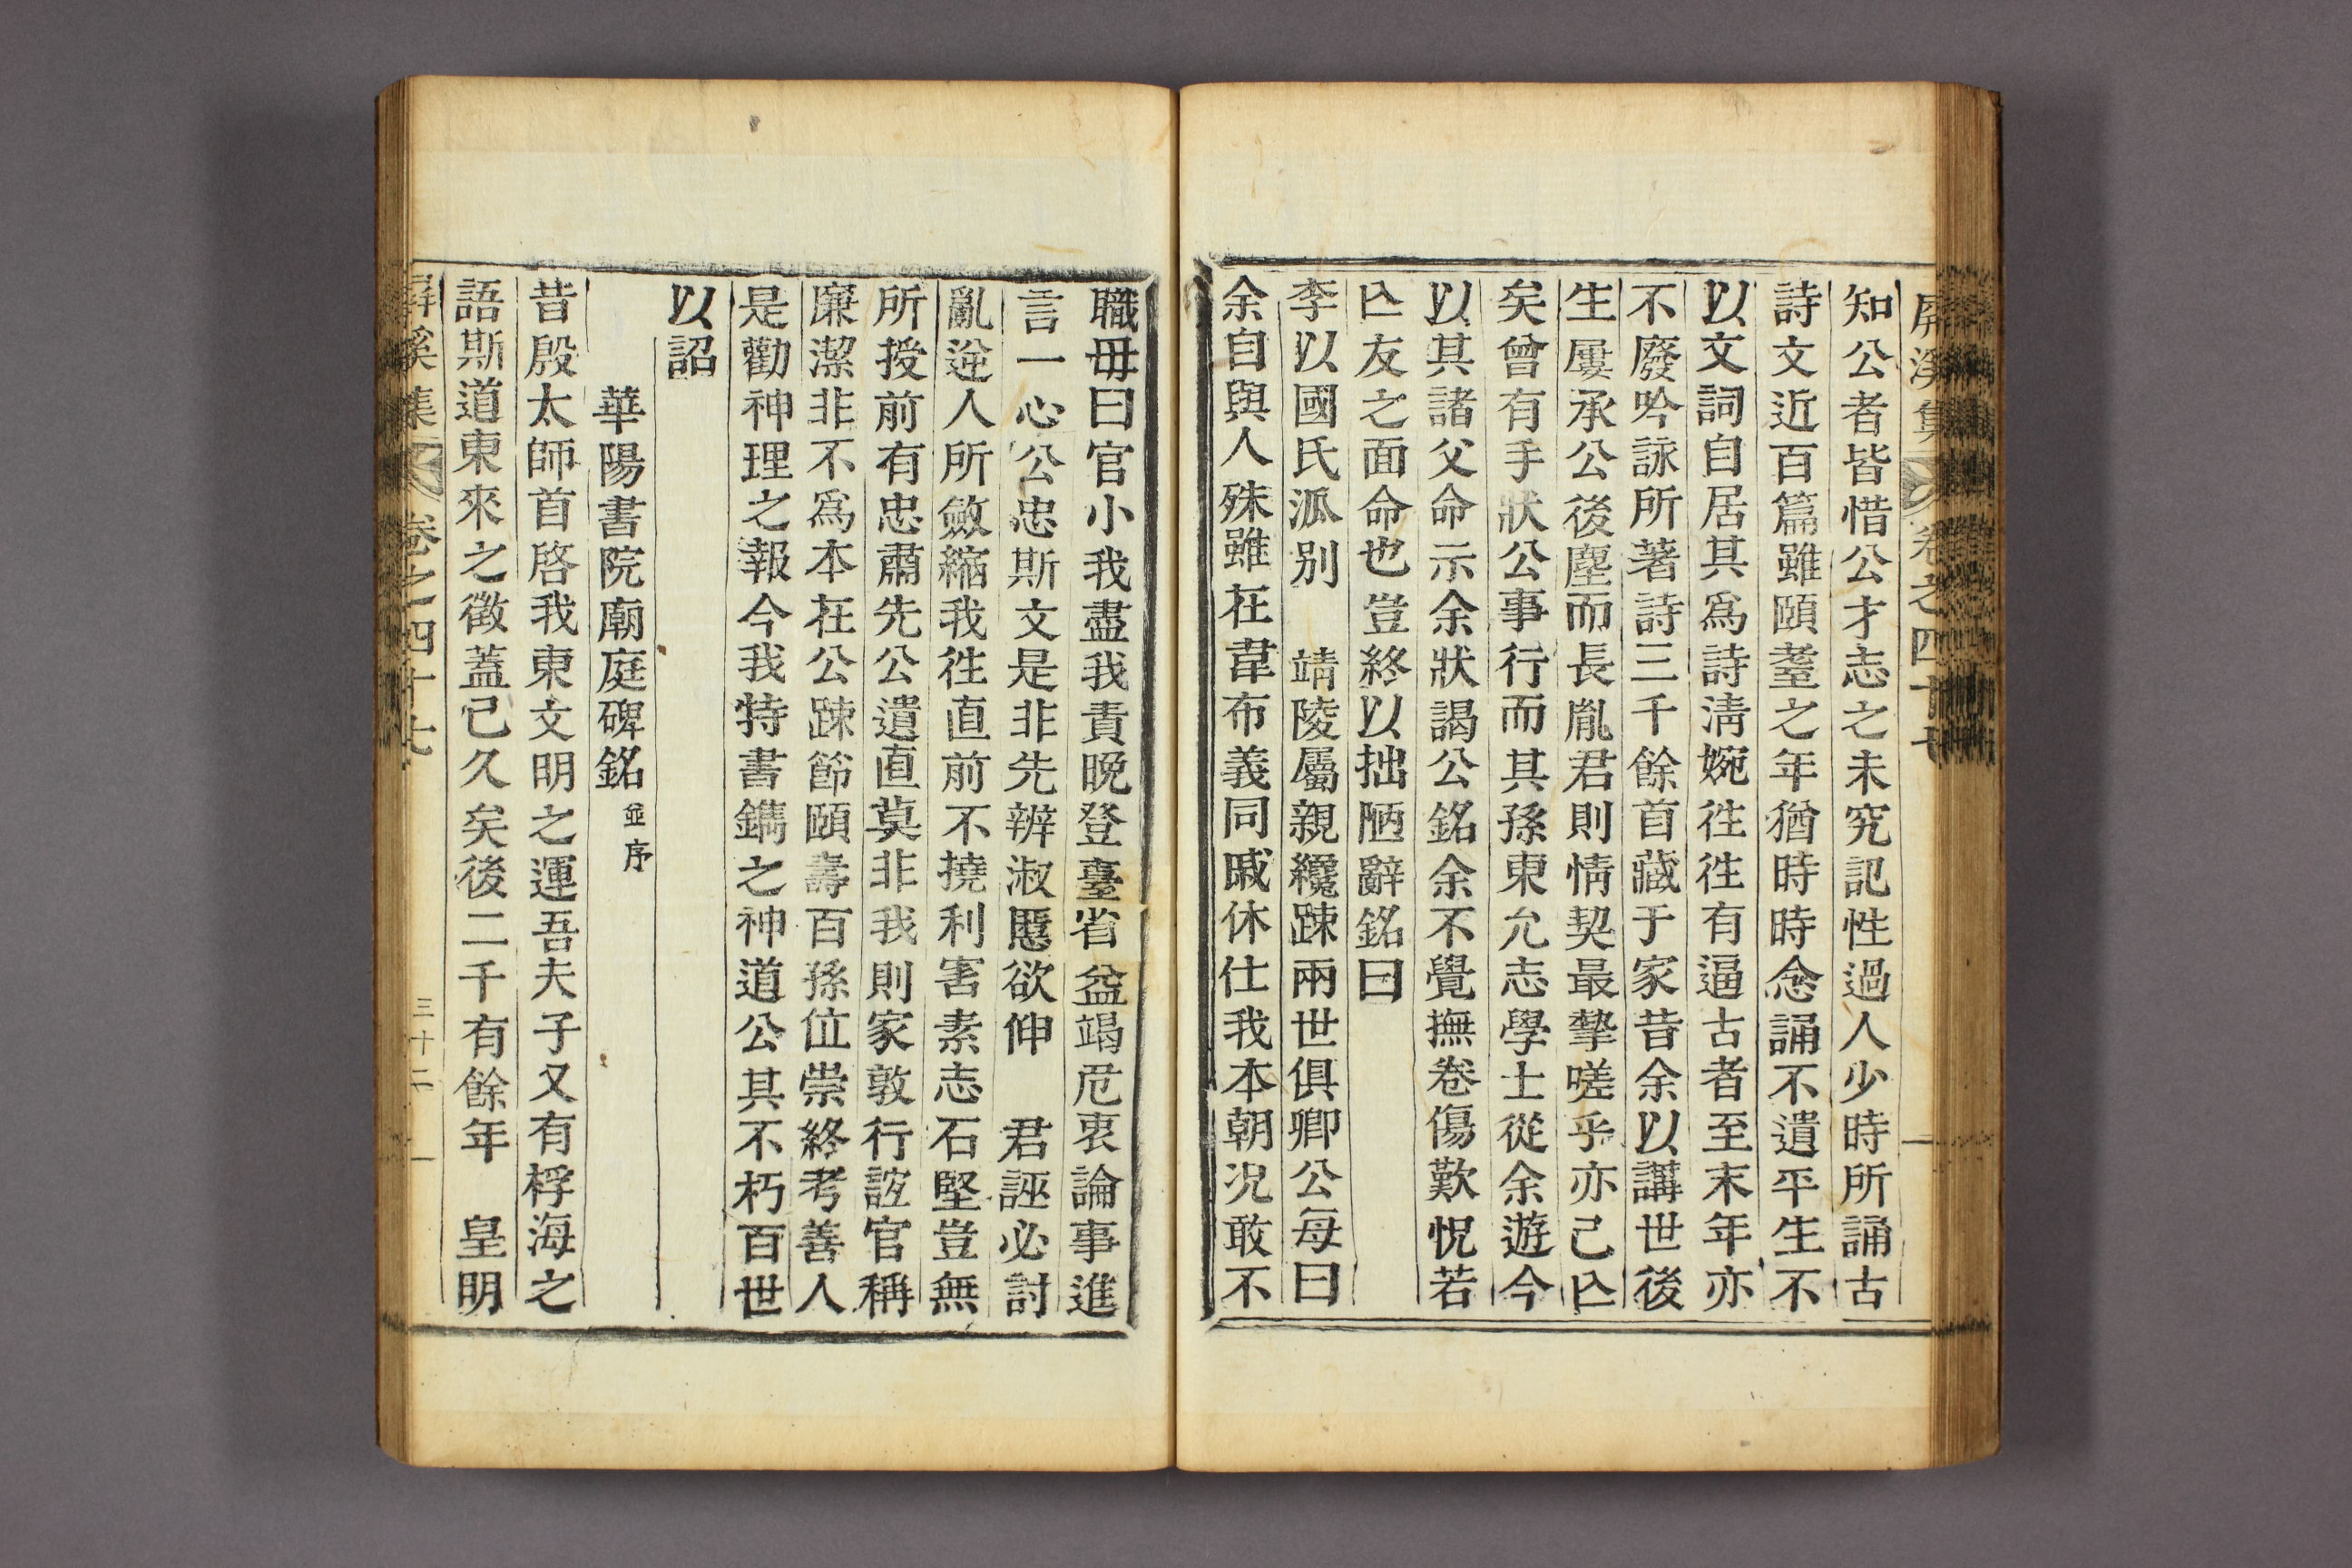 屏溪集 卷之四十七
知公者皆惜公才志之未究記性過人少時所誦古
詩文近百篇雖頤耋之年猶時時念誦不遺平生不
以文詞自居其爲詩淸婉徃徃有逼古者至末年亦
不廢吟詠所著詩三千餘首藏于家昔余以講世後
生屢承公後塵而長胤君則情契最摯嗟乎亦已亾
矣曾有手狀公事行而其孫東允志學士從余遊今
以其諸父命示余狀謁公銘余不覺撫卷傷歎怳若
亾友之面命也豈終以拙陋辭銘曰
李以國氏派別　靖陵屬親纔踈兩世俱卿公每曰
余自與人殊雖在韋布義同戚休仕我本朝况敢不
職毋曰官小我盡我責晩登臺省益竭危衷論事進
言一心公忠斯文是非先辨淑慝欲伸　君誣必討
亂逆人所斂縮我徃直前不撓利害素志石堅豈無
所授前有忠肅先公遺直莫非我則家敦行誼官稱
廉潔非不爲本在公踈節頤壽百孫位崇終考善人
是勸神理之報今我特書鐫之神道公其不朽百世
以詔
華陽書院廟庭碑銘 並序
昔殷太師首啓我東文明之運吾夫子又有桴海之
語斯道東來之徵蓋已久矣後二千有餘年　皇明
屏溪集 卷之四十七 三十二